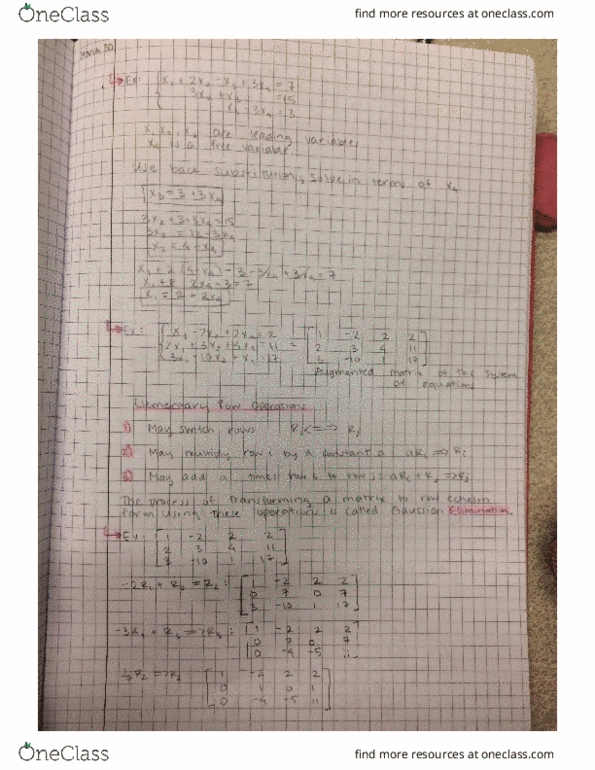 OneClass
find more resources at oneclass.com
March 30
Ex: x₁ + 2x₂ - x₃ + 3x₄ = 7
3x₂ + x₃ = 15
x₃ - 3x₄ = 3
x₁, x₂, x₃ are leading variables
x₄ is a free variable
Use back substitution, solve in terms of x₄
x₃ = 3 + 3x₄
3x₂ + 3 + 3x₄ = 15
3x₂ = 12 - 3x₄
x₂ = 4 - x₄
x₁ + 2(4 - x₄) - 3 - 3x₄ + 3x₄ = 7
x₁ + 8 2x₄ - 3 = 7
x₁ = 2 + 2x₄
Ex: x₁ - 2x₂ + 2x₃ = 2
2x₁ + 3x₂ + 4x₃ = 11
3x₁ - 10x₂ + x₃ = 17
= 1 -2 2 2
2 3 4 11
3 -10 1 17
Augmented matrix of the system
of equations
Elementary Row Operations
1) May switch rows Rᵢ <=> Rⱼ
2) May multiply row i by a constant a: aRᵢ => Rᵢ
3) May add a times row i to row j: aRᵢ + Rⱼ => Rⱼ
The process of transforming a matrix to row echelon
form using these operations is called Gaussian Elimination.
Ex: 1 -2 2 2
2 3 4 11
3 -10 1 17
-2R₁ + R₂ => R₂: 1 -2 2 2
0 7 0 7
3 -10 1 17
-3R₁ + R₃ => R₃: 1 -2 2 2
0 7 0 7
0 -4 -5 11
1/7 R₂ => R₂ 1 -2 2 2
0 1 0 1
0 -4 -5 11
OneClass
find more resources at oneclass.com